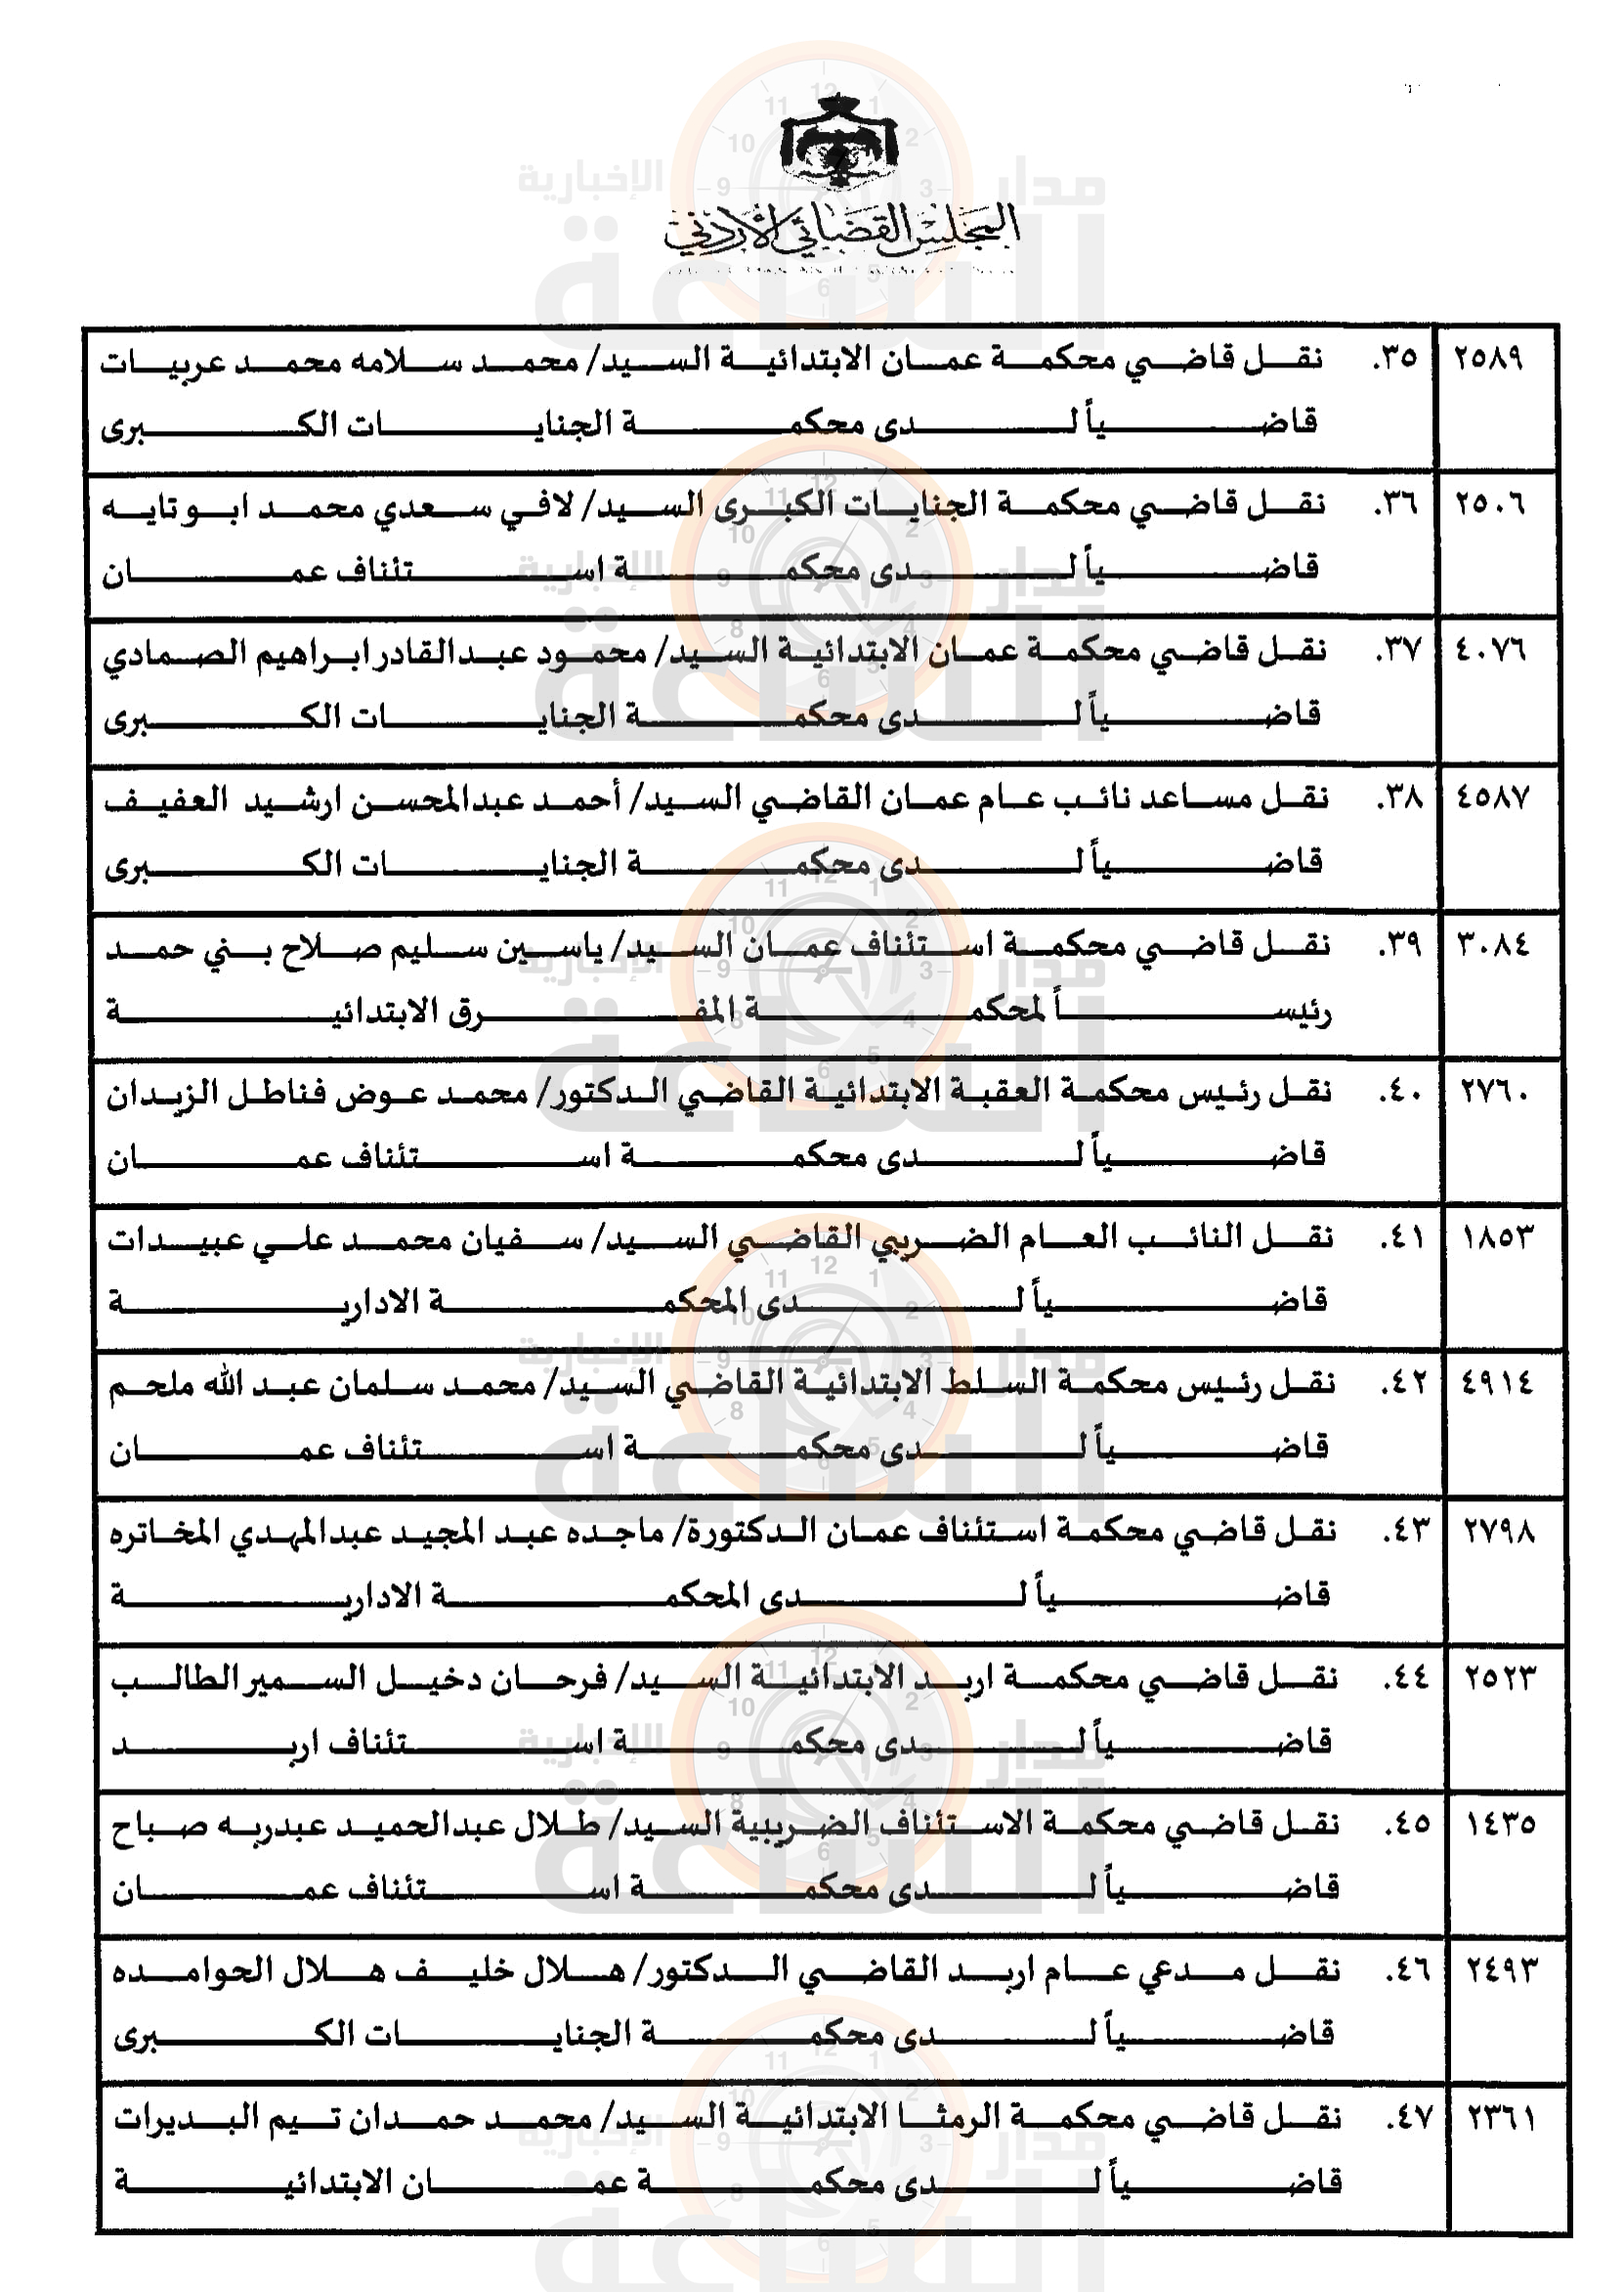 المجلس القضائي الأردني
٢٥٨٩ ٣٥. نقل قاضي محكمة عمان الابتدائية السيد/ محمد سلامه محمد عربيات
قاضياً لدى محكمة الجنايات الكبرى
٢٥٠٦ ٣٦. نقل قاضي محكمة الجنايات الكبرى السيد/ لافي سعدي محمد ابو تايه
قاضياً لدى محكمة استئناف عمان
٤٠٧٦ ٣٧. نقل قاضي محكمة عمان الابتدائية السيد/ محمود عبدالقادر ابراهيم الصمادي
قاضياً لدى محكمة الجنايات الكبرى
٤٥٨٧ ٣٨. نقل مساعد نائب عام عمان القاضي السيد/ أحمد عبدالمحسن ارشيد العفيف
قاضياً لدى محكمة الجنايات الكبرى
٣٠٨٤ ٣٩. نقل قاضي محكمة استئناف عمان السيد/ ياسين سليم صلاح بني حمد
رئيساً لمحكمة المفرق الابتدائية
٢٧٦٠ ٤٠. نقل رئيس محكمة العقبة الابتدائية القاضي الدكتور/ محمد عوض فناطل الزيدان
قاضياً لدى محكمة استئناف عمان
١٨٥٣ ٤١. نقل النائب العام الضريبي القاضي السيد/ سفيان محمد علي عبيدات
قاضياً لدى المحكمة الادارية
٤٩١٤ ٤٢. نقل رئيس محكمة السلط الابتدائية القاضي السيد/ محمد سلمان عبد الله ملحم
قاضياً لدى محكمة استئناف عمان
٢٧٩٨ ٤٣. نقل قاضي محكمة استئناف عمان الدكتورة/ ماجده عبد المجيد عبدالمهدي المخاتره
قاضياً لدى المحكمة الادارية
٢٥٢٣ ٤٤. نقل قاضي محكمة اربد الابتدائية السيد/ فرحان دخيل السمير الطالب
قاضياً لدى محكمة استئناف اربد
١٤٣٥ ٤٥. نقل قاضي محكمة الاستئناف الضريبية السيد/ طلال عبدالحميد عبدربه صباح
قاضياً لدى محكمة استئناف عمان
٢٤٩٣ ٤٦. نقل مدعي عام اربد القاضي الدكتور/ هلال خليف هلال الحوامده
قاضياً لدى محكمة الجنايات الكبرى
٢٣٦١ ٤٧. نقل قاضي محكمة الرمثا الابتدائية السيد/ محمد حمدان تيم البديرات
قاضياً لدى محكمة عمان الابتدائية
مدار الساعة الإخبارية